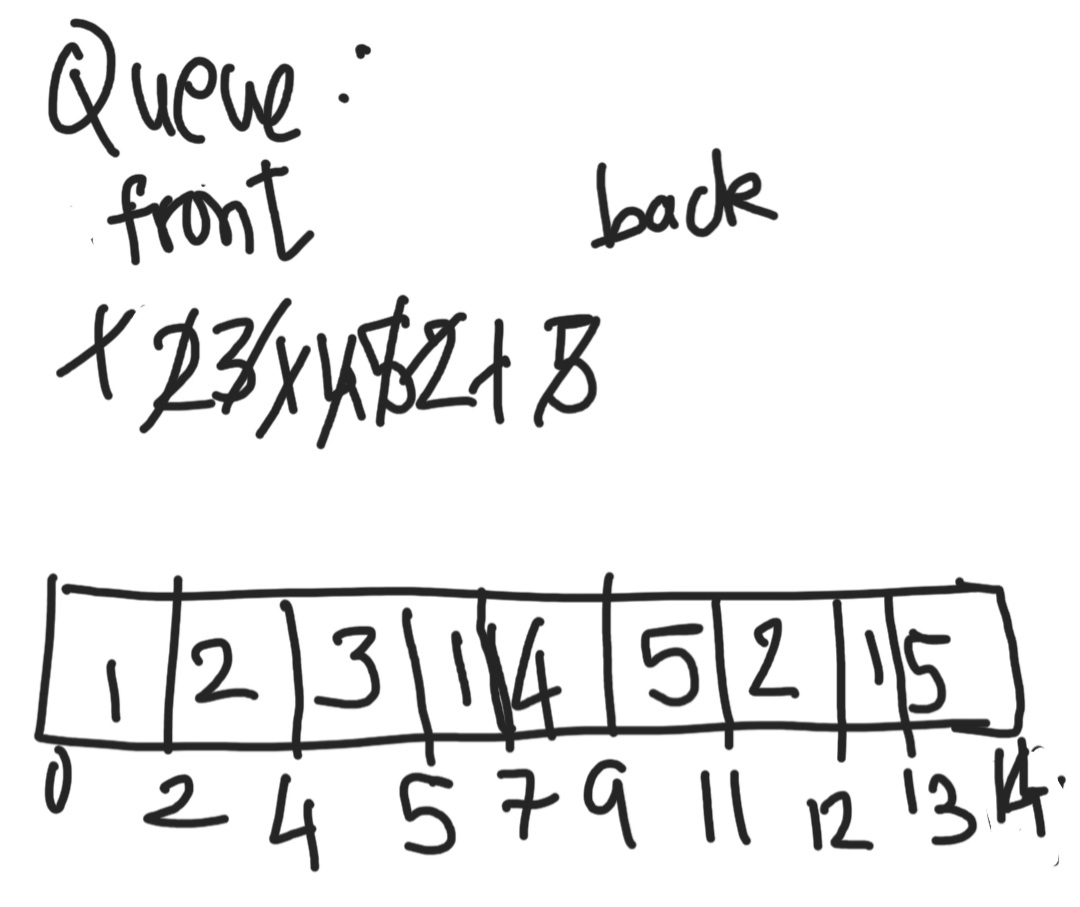 Queue:
front back
1 2 3 1 4 5 2 1 5
1 2 3 1 4 5 2 1 5
0 2 4 5 7 9 11 12 13 14